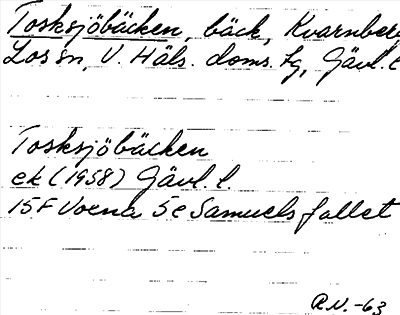 Tosksjöbäcken, bäck, Kvarnberg
Los sn, V. Häls. doms. tg, Gävl. l
Tosksjöbäcken
ek (1958) Gävl. l.
15F Voxna 5e Samuelsfallet
R.N. -63